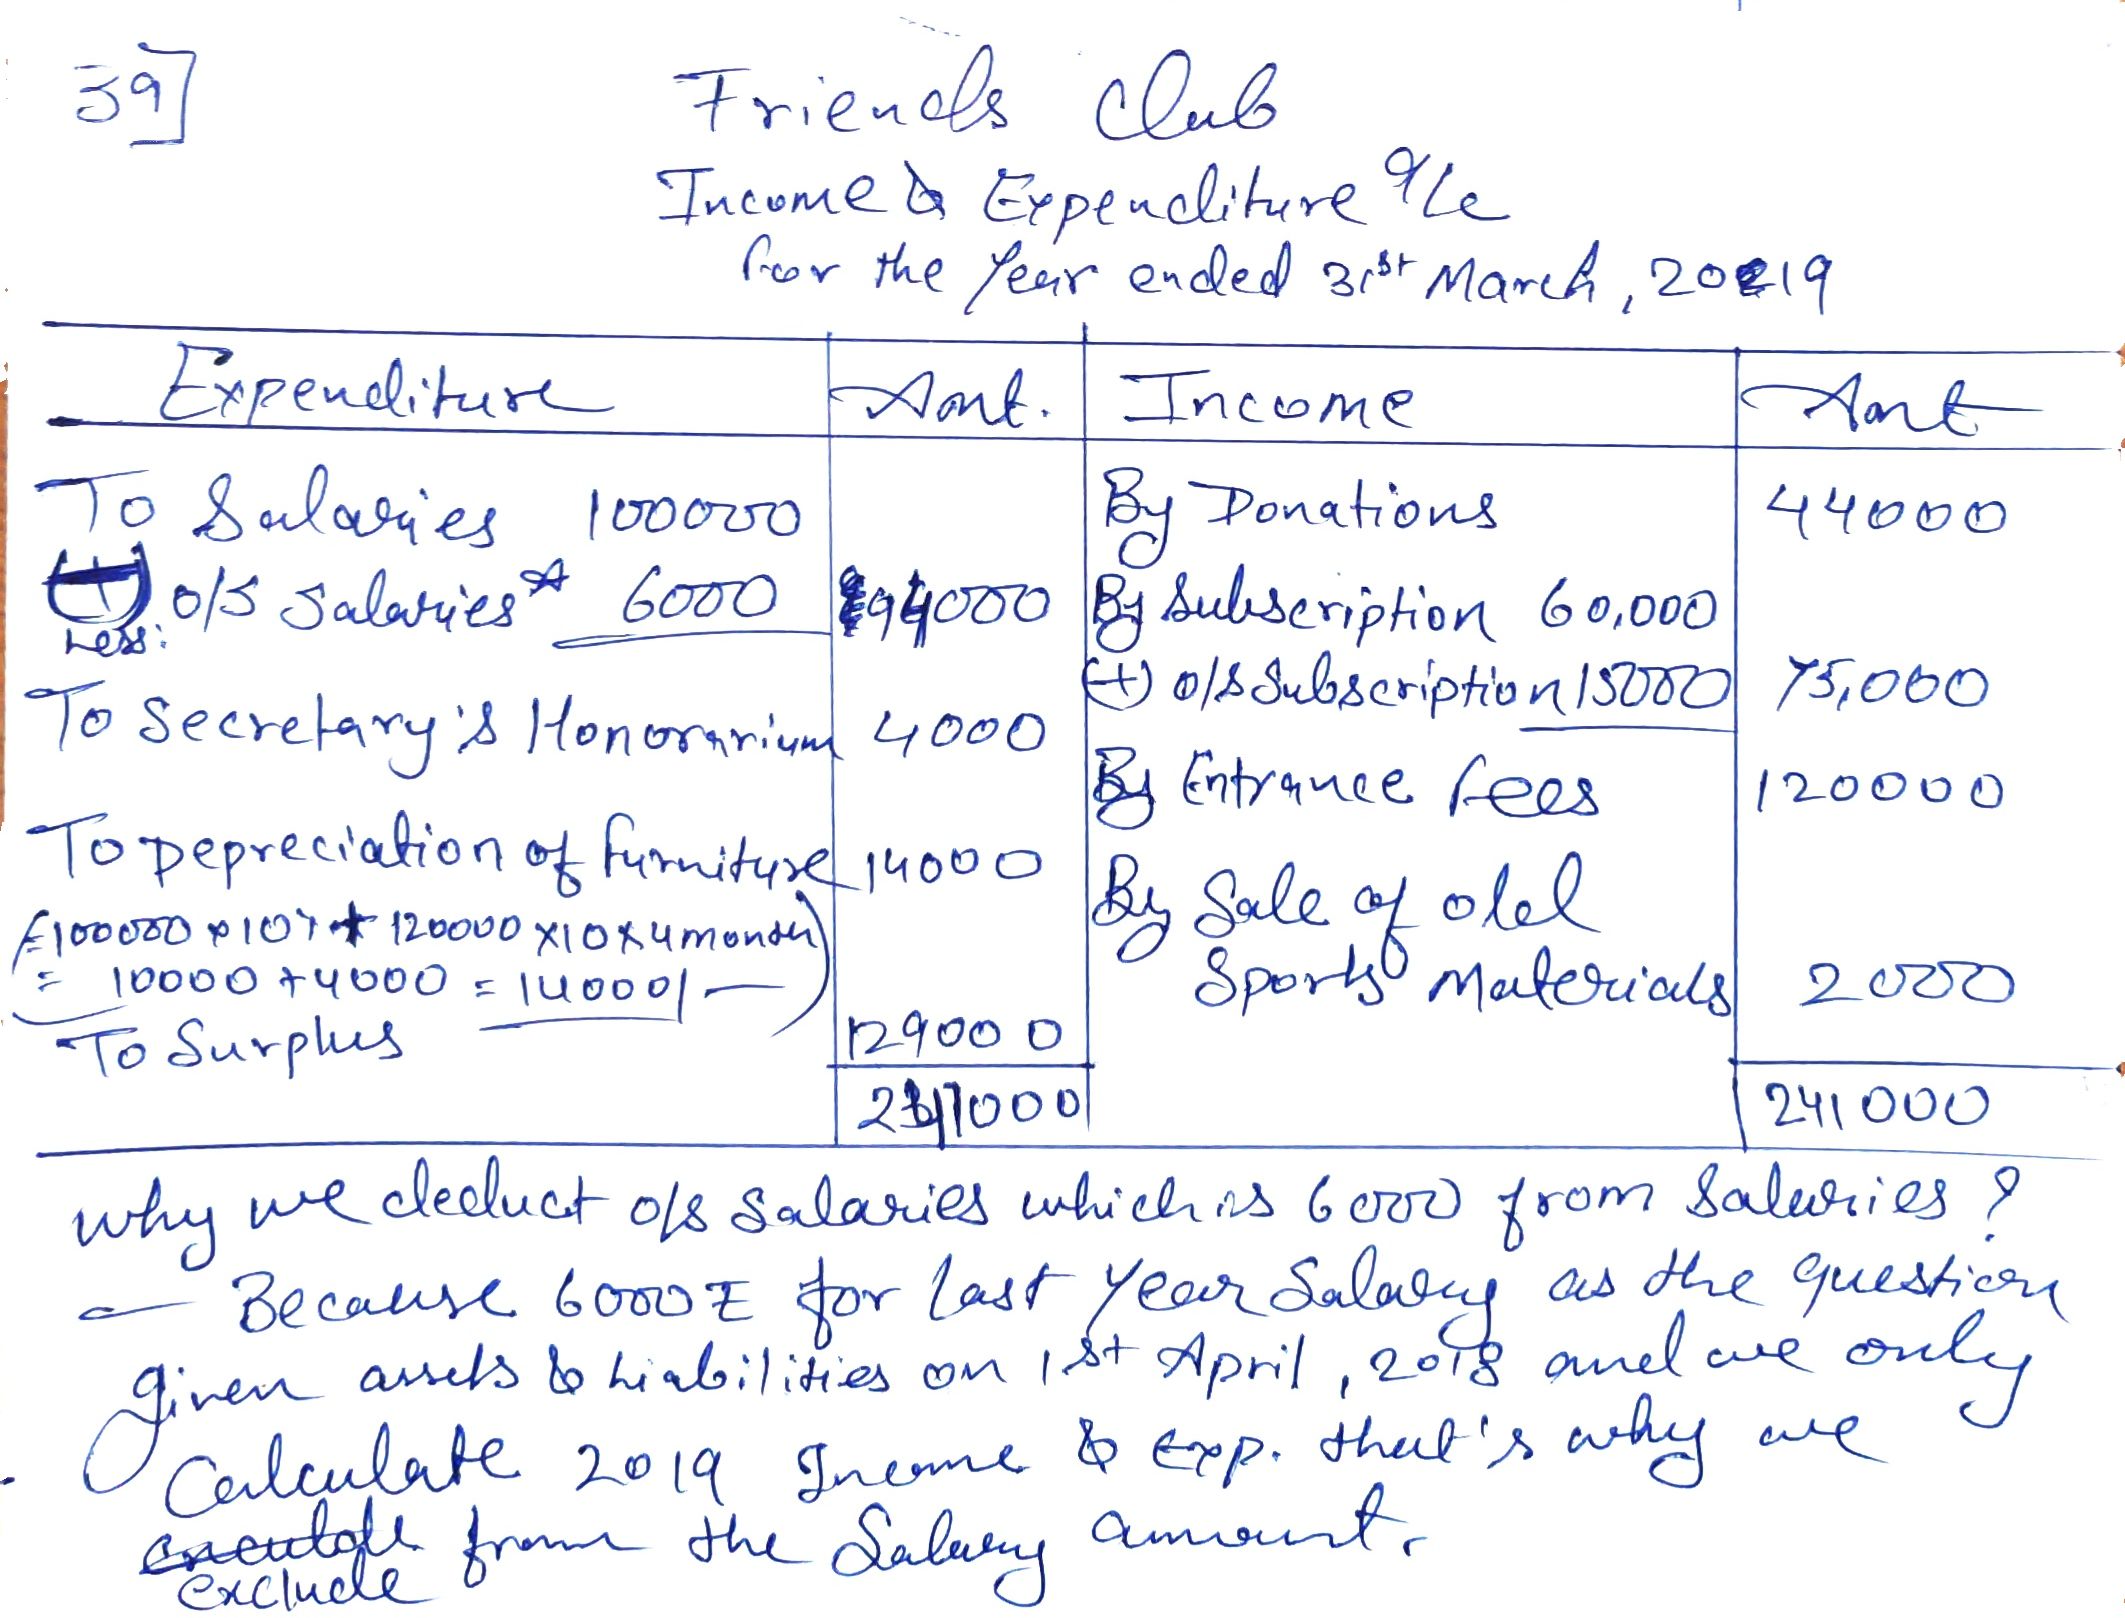 39]
Friends Club
Income & Expenditure a/c
for the Year ended 31st March, 2019
Expenditure Amt. Income Amt
To Salaries 100000 By Donations 44000
(+) o/s Salaries* 6000 94000 By Subscription 60,000
Less:
(+) o/s Subscription 15000 75,000
To Secretary's Honorarium 4000
By Entrance fees 120000
To Depreciation of furniture 14000
By Sale of old
(=100000 × 10% + 120000 × 10 × 4 month)
Sports Materials 2000
= 10000 + 4000 = 14000/—
To Surplus 129000
241000 241000
why we deduct o/s Salaries which is 6000 from Salaries?
— Because 6000 for last year Salary as the question
given assets & Liabilities on 1st April, 2018 and we only
Calculate 2019 Income & Exp. that's why we
exclude from the Salary amount.